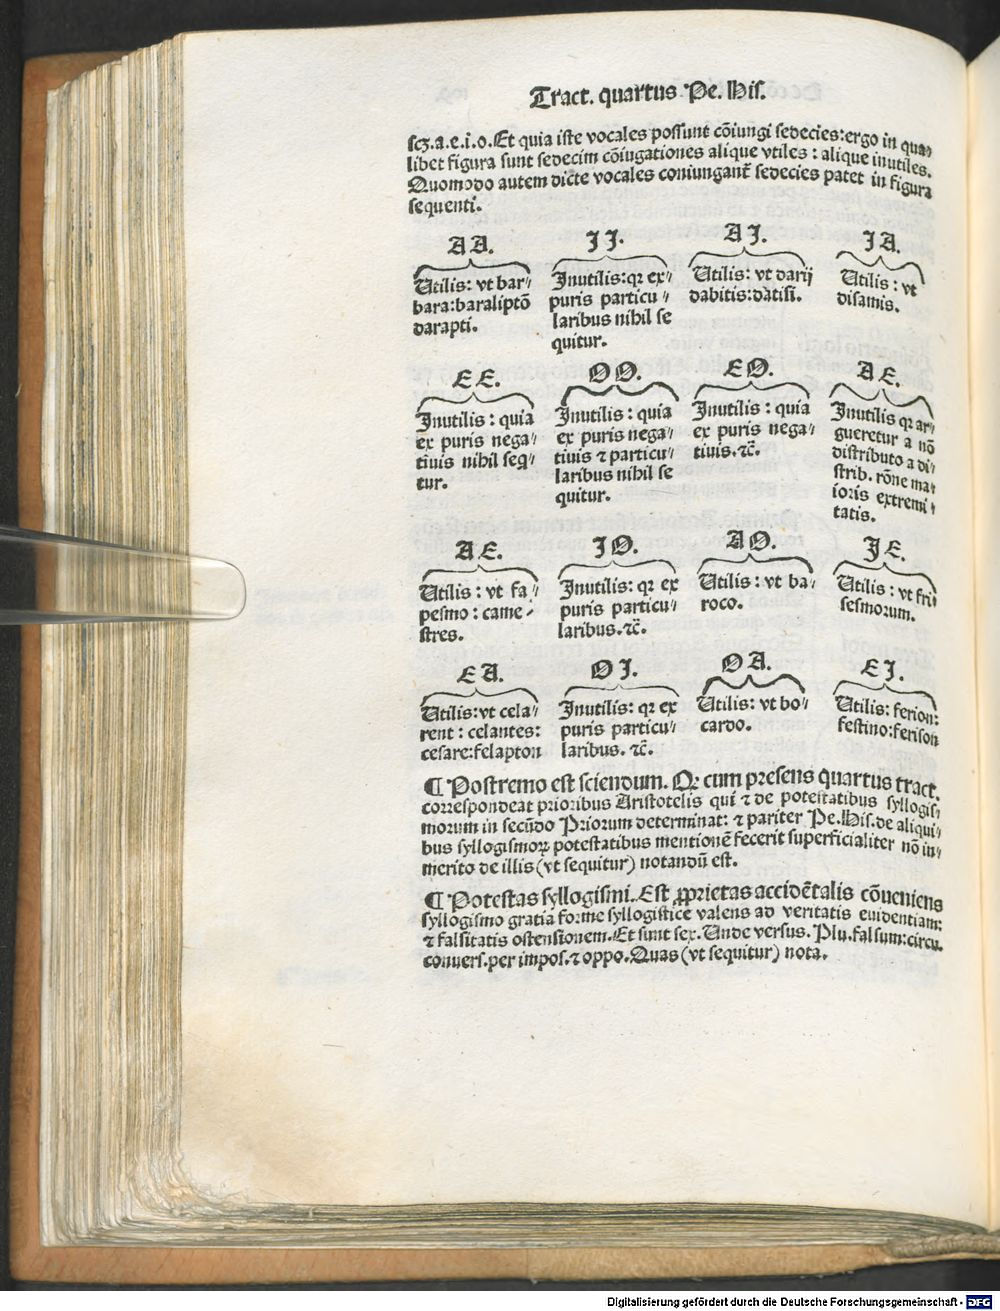 Tract. quartus Pe. His.
scʒ.a.e.i.o.Et quia iste vocales possunt cōiungi sedecies:ergo in qua⸗
libet figura sunt sedecim cōiugationes alique vtiles : alique inutiles.
Quomodo autem dicte vocales coniungant̄ sedecies patet in figura
sequenti.
A A.
Utilis: vt bar⸗
bara:baraliptō
darapti.
I I.
Inutilis:qꝛ ex⸗
puris particu⸗
laribus nihil se
quitur.
A I.
Utilis: vt darij
dabitis:datisi.
I A.
Utilis : vt
disamis.
E E.
Inutilis : quia
ex puris nega⸗
tiuis nihil seq̄⸗
tur.
O O.
Inutilis : quia
ex puris nega⸗
tiuis ⁊ particu⸗
laribus nihil se
quitur.
E O.
Inutilis : quia
ex puris nega⸗
tiuis.⁊c̄.
A E.
Inutilis qꝛ ar⸗
gueretur a nō
distributo a di⸗
strib. rōne ma⸗
ioris extremi⸗
tatis.
A E.
Utilis : vt fa⸗
pesmo : came⸗
stres.
I O.
Inutilis: qꝛ ex
puris particu⸗
laribus.⁊c̄.
A O.
Utilis : vt ba⸗
roco.
I E.
Utilis : vt fri⸗
sesmorum.
E A.
Utilis:vt cela⸗
rent : celantes:
cesare:felapton
O I.
Inutilis: qꝛ ex
puris particu⸗
laribus. ⁊c̄.
O A.
Utilis: vt bo⸗
cardo.
E I.
Utilis: ferion:
festino:ferison
¶ Postremo est sciendum. Qꝛ cum presens quartus tract.
correspondeat prioribus Aristotelis qui ⁊ de potestatibus syllogis⸗
morum in secūdo Priorum determinat: ⁊ pariter Pe.His.de aliqui⸗
bus syllogismoꝝ potestatibus mentionē fecerit superficialiter nō im⸗
merito de illis (vt sequitur) notandū est.
¶ Potestas syllogismi. Est ꝓprietas accidētalis cōueniens
syllogismo gratia forme syllogistice valens ad veritatis euidentiam:
⁊ falsitatis ostensionem.Et sunt sex.Unde versus. Plu.falsum:circu.
conuers.per impos.⁊ oppo.Quas (vt sequitur) nota.
Digitalisierung gefördert durch die Deutsche Forschungsgemeinschaft - DFG